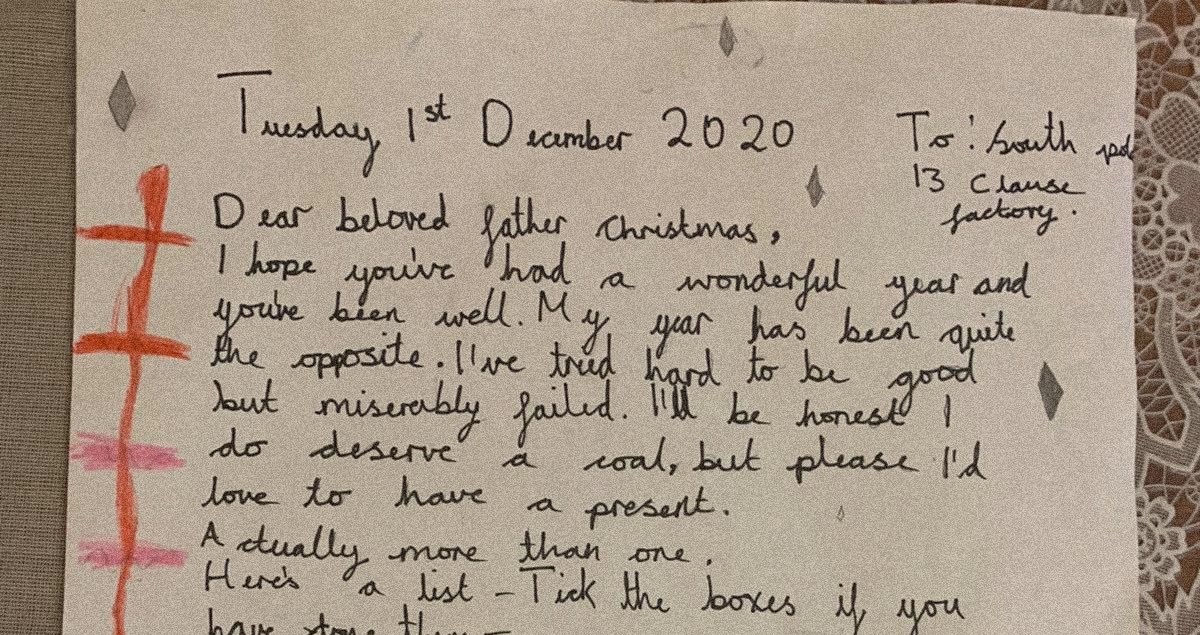 Tuesday 1st December 2020
To: South pol
13 Clause
factory.
Dear beloved father Christmas,
I hope you've had a wonderful year and
you've been well. My year has been quite
the opposite. I've tried hard to be good
but miserably failed. I'll be honest I
do deserve a coal, but please I'd
love to have a present.
Actually more than one.
Here's a list - Tick the boxes if you
have